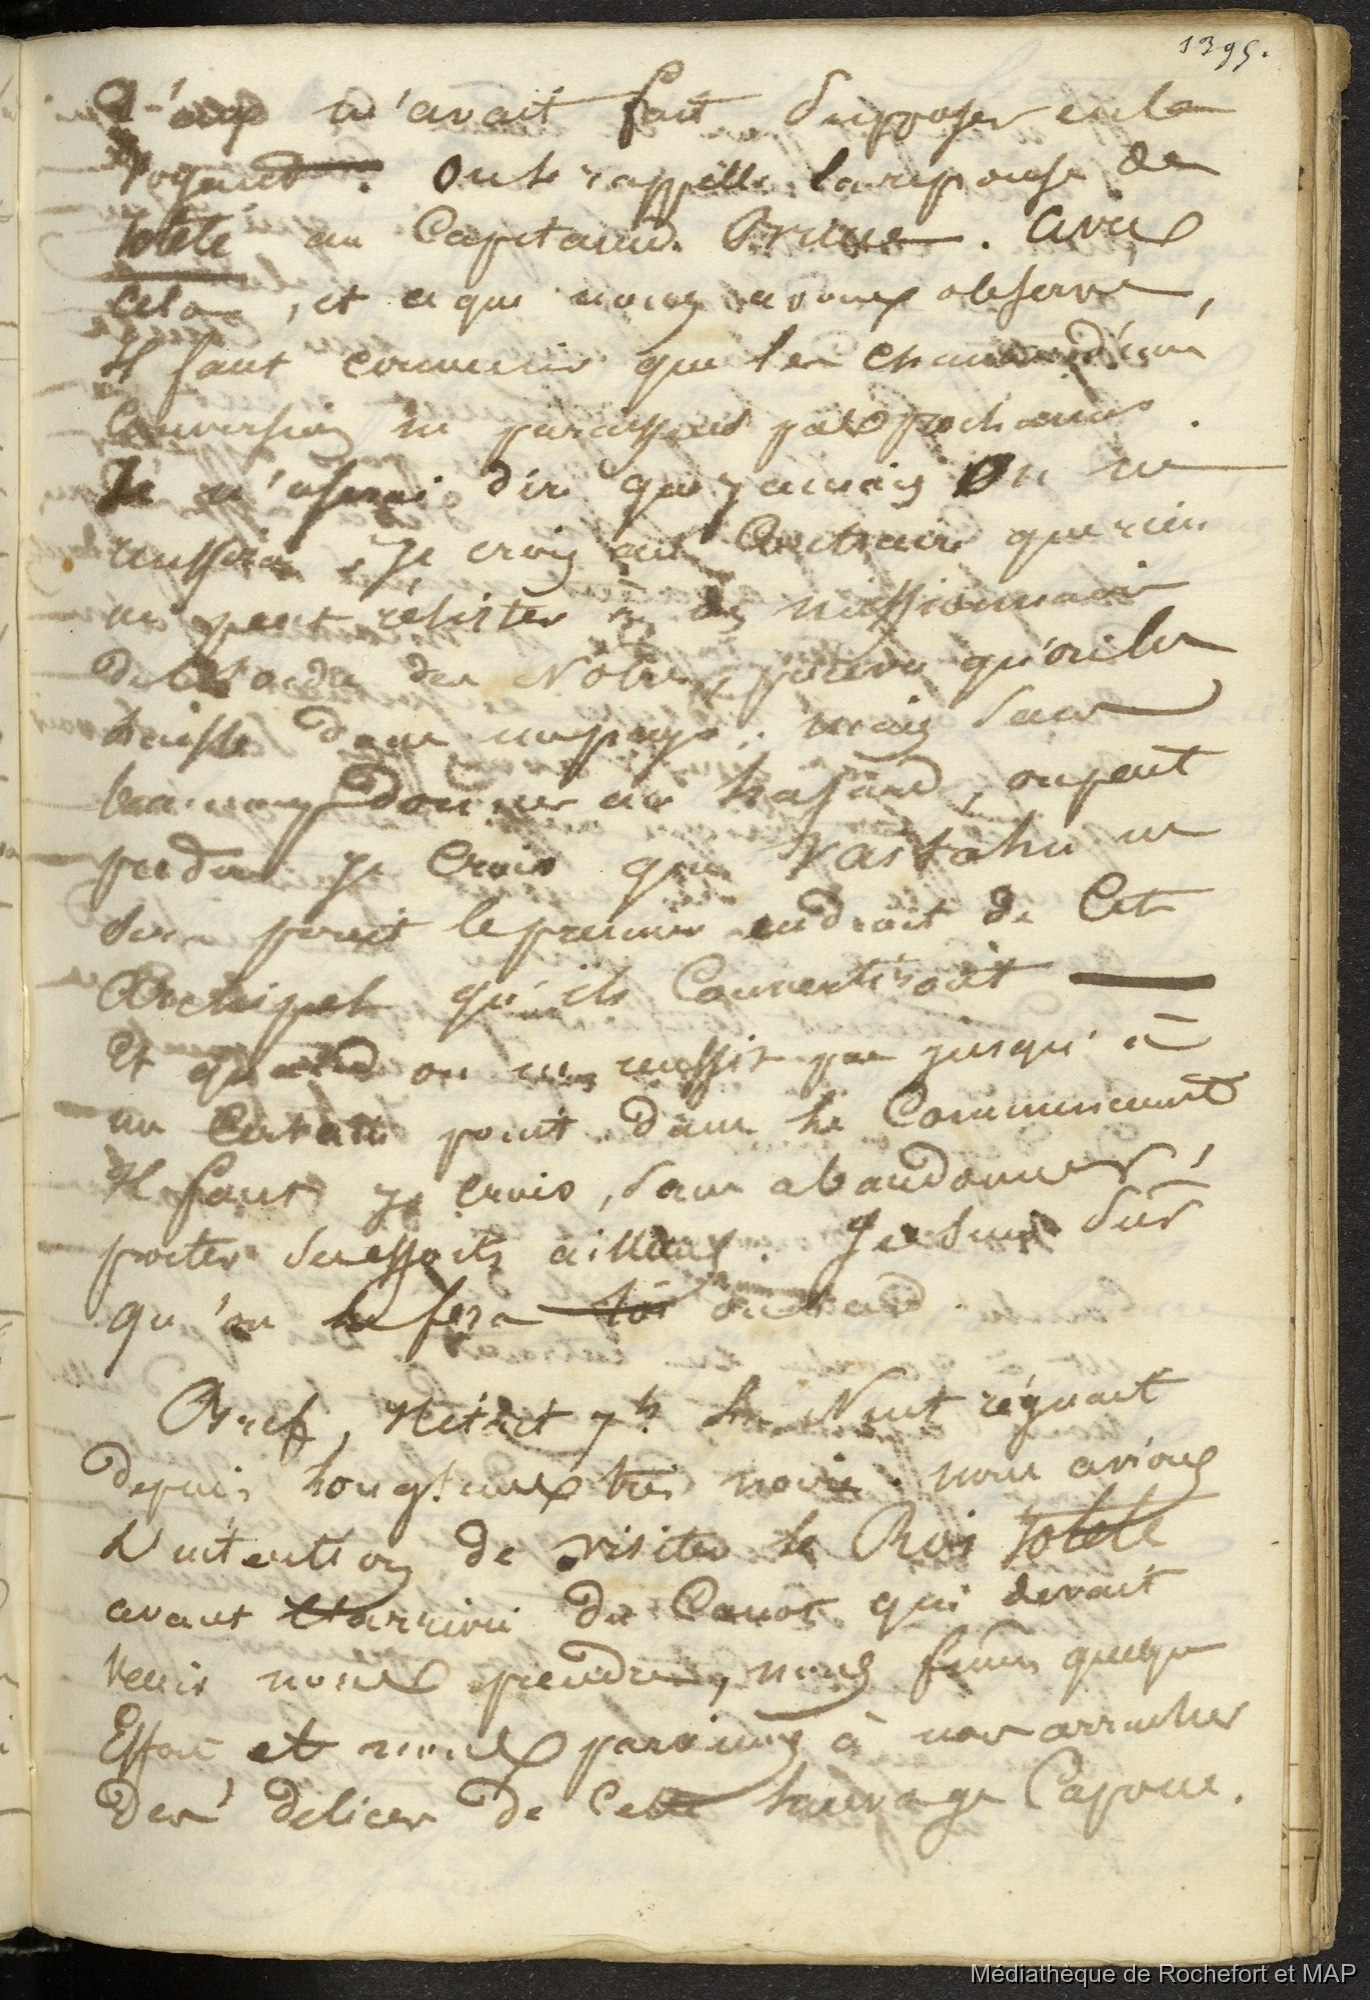 1395.
m'avait fait Supposer en le
voyant. On se rappelle la reponse de
Iotété au Capitaine Bruce. Avec
cela, et ce que nous avons observé,
Il faut convenir que les chances d'une
Conversion ne paraissent pas prochaines.
Je n'oserai dire que jamais On ne
reussira, Je crois au Contraire que rien
ne peut résister à des missionnaires
de l'ordre des Nôtres, pourvu qu'on les
laisse dans un pays; mais sans
beaucoup donner au hasard, on peut
perdre Je Crois que Vaitahu ne
sera point le premier endroit de Cet
Archipel qu'ils Convertiront
Et quand on ne reussit pas jusqu'à
un Certain point dans le Commencement
Il faut je crois, sans abandonner,
porter ses efforts ailleurs. Je suis Sûr
qu'on le fera tôt ou tard.
Bref, Il était 7h la Nuit régnait
depuis longtemps très noire. nous avions
L'intention de visiter le Roi Iotété
avant L'arrivée du Canot qui devait
venir nous prendre, nous fîmes quelque
Effort et nous parvinmes à nous arracher
des délices de Cette sauvage Capoue.
Médiathèque de Rochefort et MAP